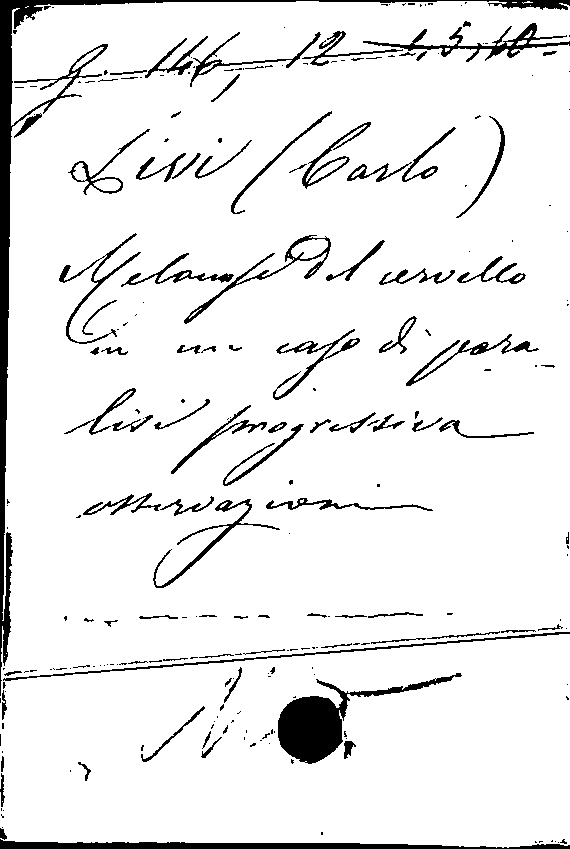 g. 146, 12 1,5,10-
Livi (Carlo)
Melanosi del cervello
in un caso di para
lisi progressiva
osservazioni